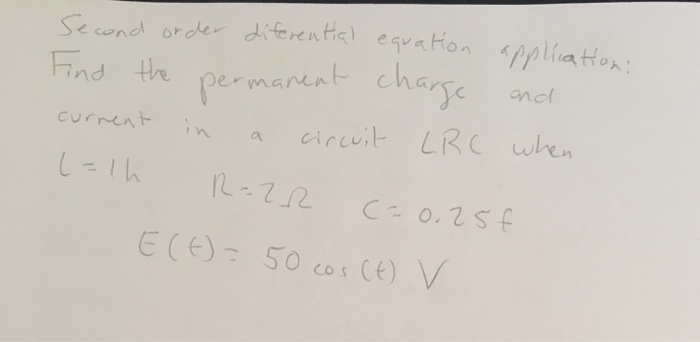 Second order diferential equation application:
Find the permanent charge and
current in a circuit LRC when
L=1h R=2Ω C=0.25f
E(t)= 50 cos(t) V